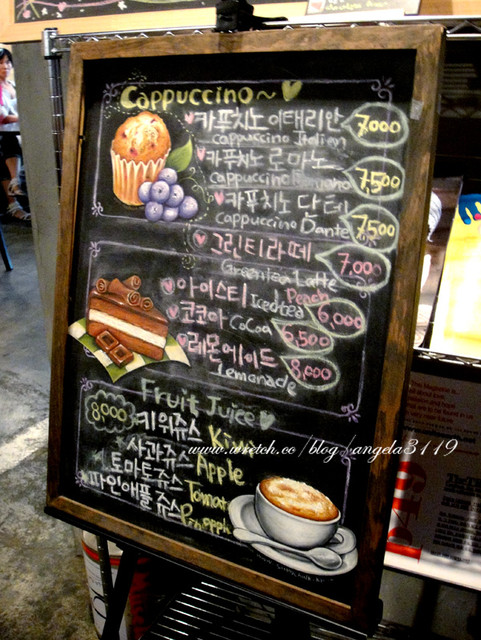 Cappuccino~
카푸치노 이태리안 7,000
cappuccino Italien
카푸치노 로마노 7,500
cappuccino Romano
카푸치노 단테 7,500
cappuccino Dante
그린티라떼 7,000
Greentea Latte
아이스티 Icedtea Peach 6,000
코코아 CoCoa 6,500
레몬에이드 8,000
Lemonade
Fruit Juice
8000 키위쥬스 Kiwi
사과쥬스 Apple
토마토쥬스 Tomat
파인애플 쥬스 Pineapph
www.wretch.cc/blog/angela3119